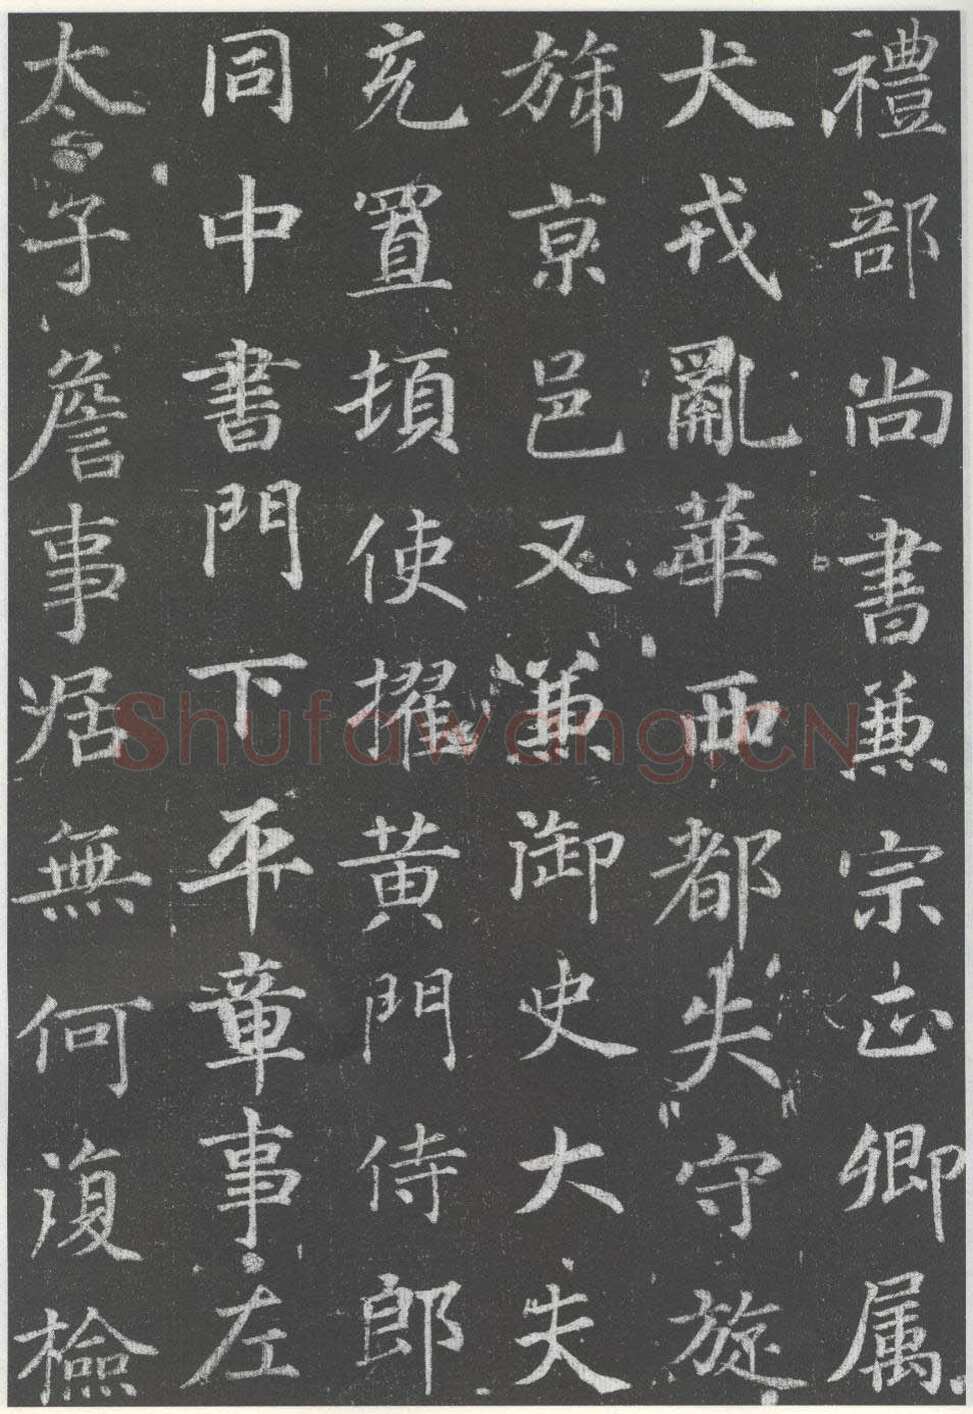 禮部尚書兼宗正卿属
犬戎亂華西都失守旋
旆京邑又兼御史大夫
充置頓使擢黄門侍郎
同中書門下平章事左
太子詹事居無何復檢
Shufawang.CN